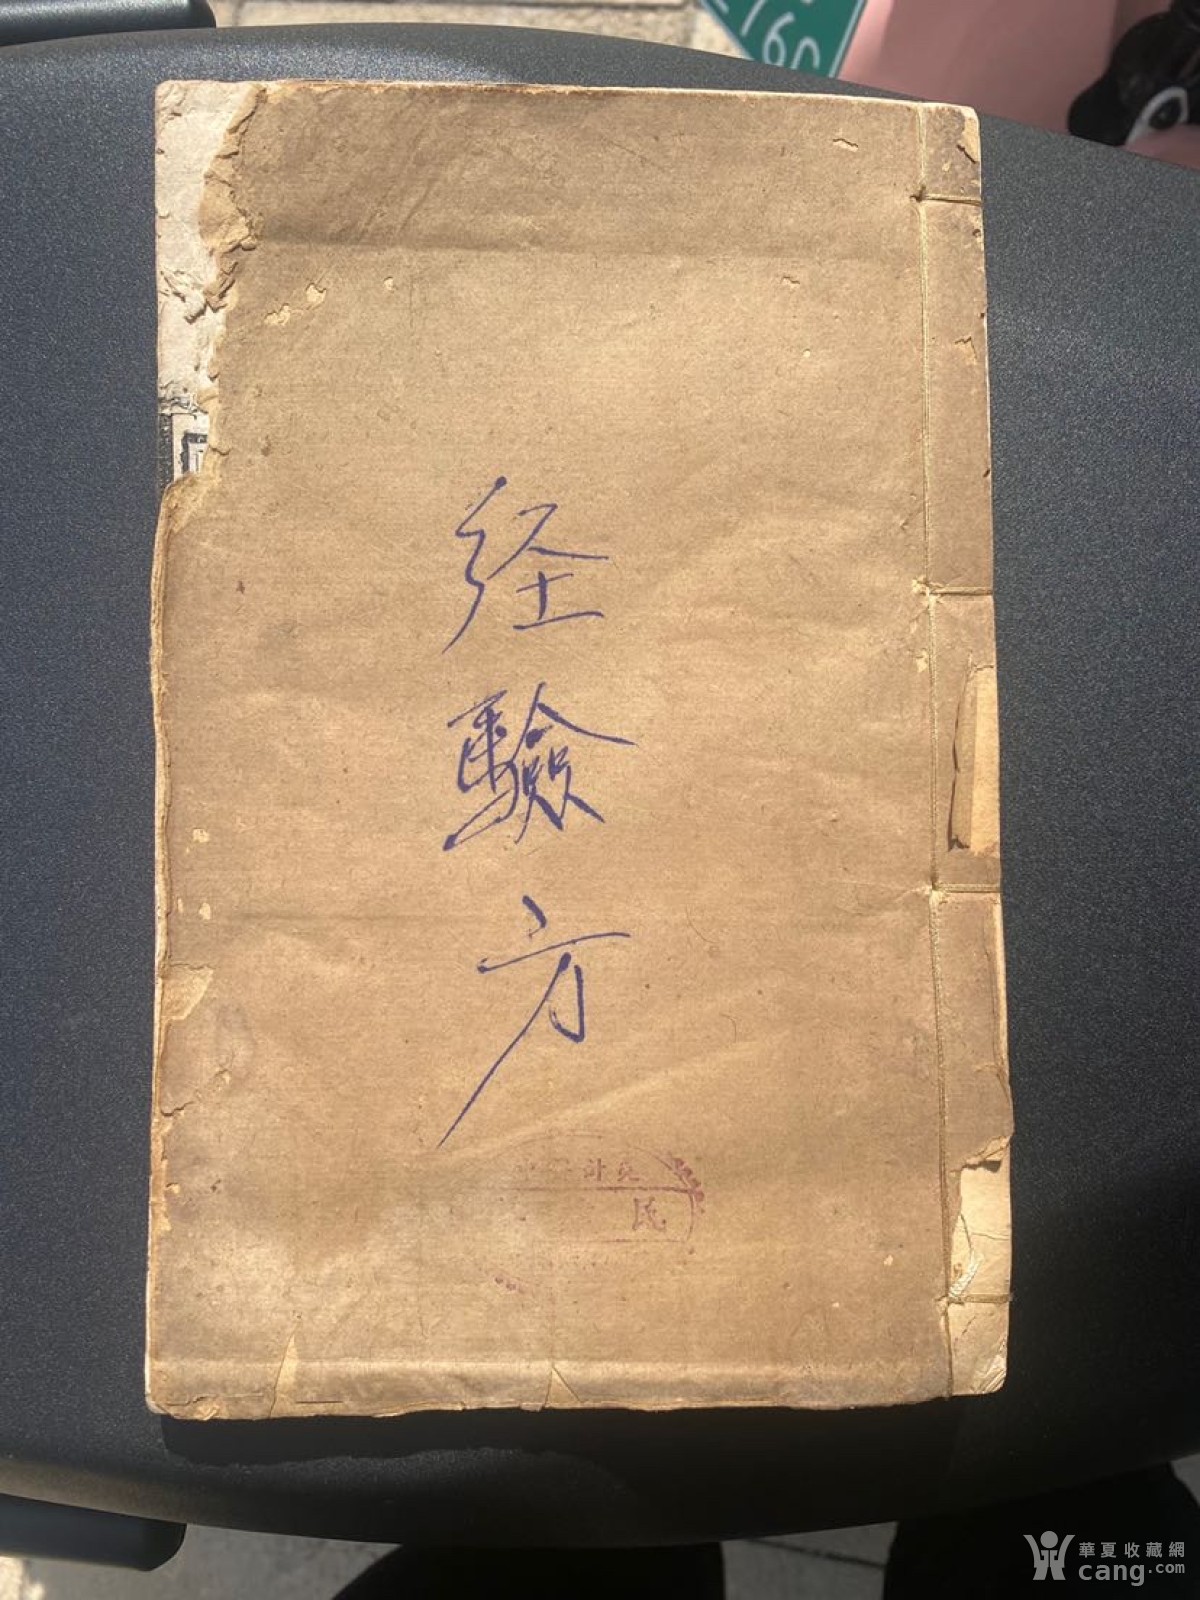 160
经
驗
方
民
華夏收藏網
cang.com